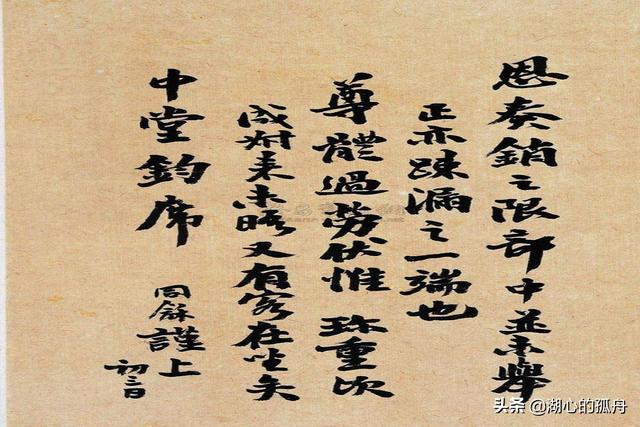 恩奏銷之限部中並未舉
正亦疎漏之一端也
尊體過勞伏惟 珎重次
来未晤又有客在坐矣
中堂鈞席
同龢謹上
初三日
头条 @湖心的孤舟